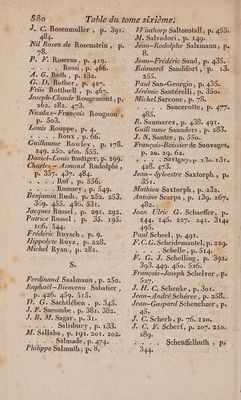 580 Table du tome sixième.
J. C. Rosenmuller, p. 391.
484.
Nil Rosen de Rosenstein, p.
78.
P. F. Roserus, p. 419.
. . . . Rossi, p. 466.
A. G. Roth, p. 132.
G. D. Rother, p. 427.
Friis Rottboell, p. 467.
Joseph-Claude Rougemont, p.
262. 281. 473.
Nicolas-François Rougnon,
p. 503.
Louis Rouppe, p. 4.
. . . . Roux, p. 66.
Guillaume Rowley, p. 178.
249. 250. 260. 555.
Daniel-Louis Rudiger, p. 299.
Charles-Asmond Rudolphi,
p. 357. 437. 484.
. . . . Ruf, p. 556.
. . . . Rumsey, p. 549.
Benjamin Rush, p. 252. 253.
359. 455. 456. 531.
Jacques Russel, p. 291. 292.
Patrice Russel, p. 35. 195.
106. 544.
Fréderic Ruysch, p. 9.
Hippolyte Ruyz, p. 228.
Michel Ryan, p. 281.
S.
Ferdinand Saalmann, p. 250.
Raphaël-Bienvenu Sabatier,
p. 426. 459. 515.
D. G. Sachtlèben, p. 345.
J. F. Sacombe, p. 381. 382.
J. B. M. Sagar, p. 31.
. . . . Salisbury, p. 133.
M. Sallaba, p. 192. 201. 202.
. . . . Salmade, p. 474.
Philippe Salmuth, p. 8.
Winthorp Saltonstall, p. 455.
M. Salvadori, p. 149.
Jean-Rodolphe Salzmann, p.
8.
Jean-Fréderic Sand, p. 435.
Edouard Sandifort, p. 13.
255.
Paul San-Georgio, p. 435.
Jérémie Santorelli, p. 350.
Michel Sarcone, p. 78.
. . . . Saucerotte, p. 477.
485.
R. Saumarez, p. 438. 491.
Guillaume Saunders, p. 283.
J. N. Sauter, p. 550.
François-Boissier de Sauvages,
p. 22. 29. 62.
. . . . Savigny, p. 130. 131.
428. 473.
Jean-Sylvestre Saxtorph, p.
351.
Mathieu Saxtorph, p. 232.
Antoine Scarpa, p. 139. 267.
482.
Jean Ulric G. Schaeffer, p.
144. 145. 227. 241. 314.
495.
Paul Scheel, p. 491.
F. C. G. Scheidemantel, p. 229.
. . . . Schelle, p. 514.
F. G. J. Schelling, p. 392.
393. 449. 450. 526.
François-Joseph Schelver, p.
527.
J. H. C. Schenke, p. 301.
Jean-André Schérer, p. 258.
Jean-Gaspard Scheuchzer, p.
45.
J. C. Scherb, p. 76. 120.
J. C. F. Scherf, p. 207. 210.
289.
. . . . Scheuffelhuth, p.
344.